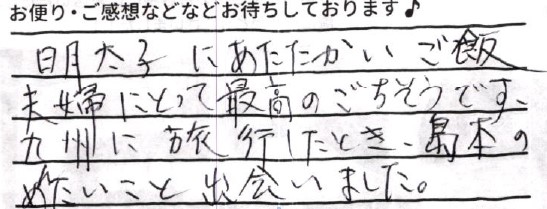 お便り・ご感想などなどお待ちしております♪
明太子にあたたかいご飯
夫婦にとって最高のごちそうです、
九州に旅行したとき、島本の
めんたいこと出会いました。